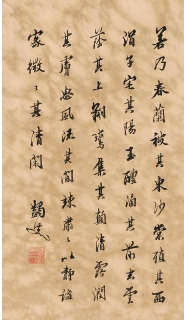 若乃春蘭被其東沙棠殖其西
涓子宅其陽玉醴涌其前玄雲
蔭其上翔鸞集其巔清露潤
其膚惠風流其間竦肅々以靜謐
密微々其清閑